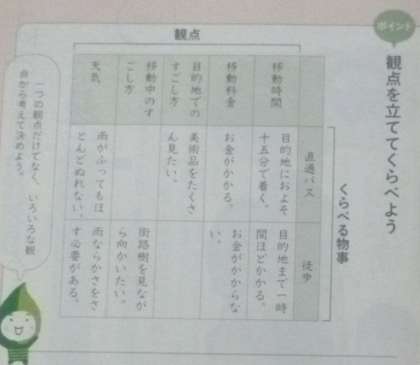 ポイント
観点を立ててくらべよう
くらべる物事
直通バス
徒歩
観点
移動時間
目的地におよそ
十五分で着く。
目的地まで一時
間ほどかかる。
移動料金
お金がかかる。
お金がかからな
い。
目的地での
すごし方
美術品をたくさ
ん見たい。
移動中のす
ごし方
街路樹を見なが
ら向かいたい。
天気
雨がふってもほ
とんどぬれない。
雨ならかさをさ
す必要がある。
一つの観点だけでなく、いろいろな観
点から考えて決めよう。